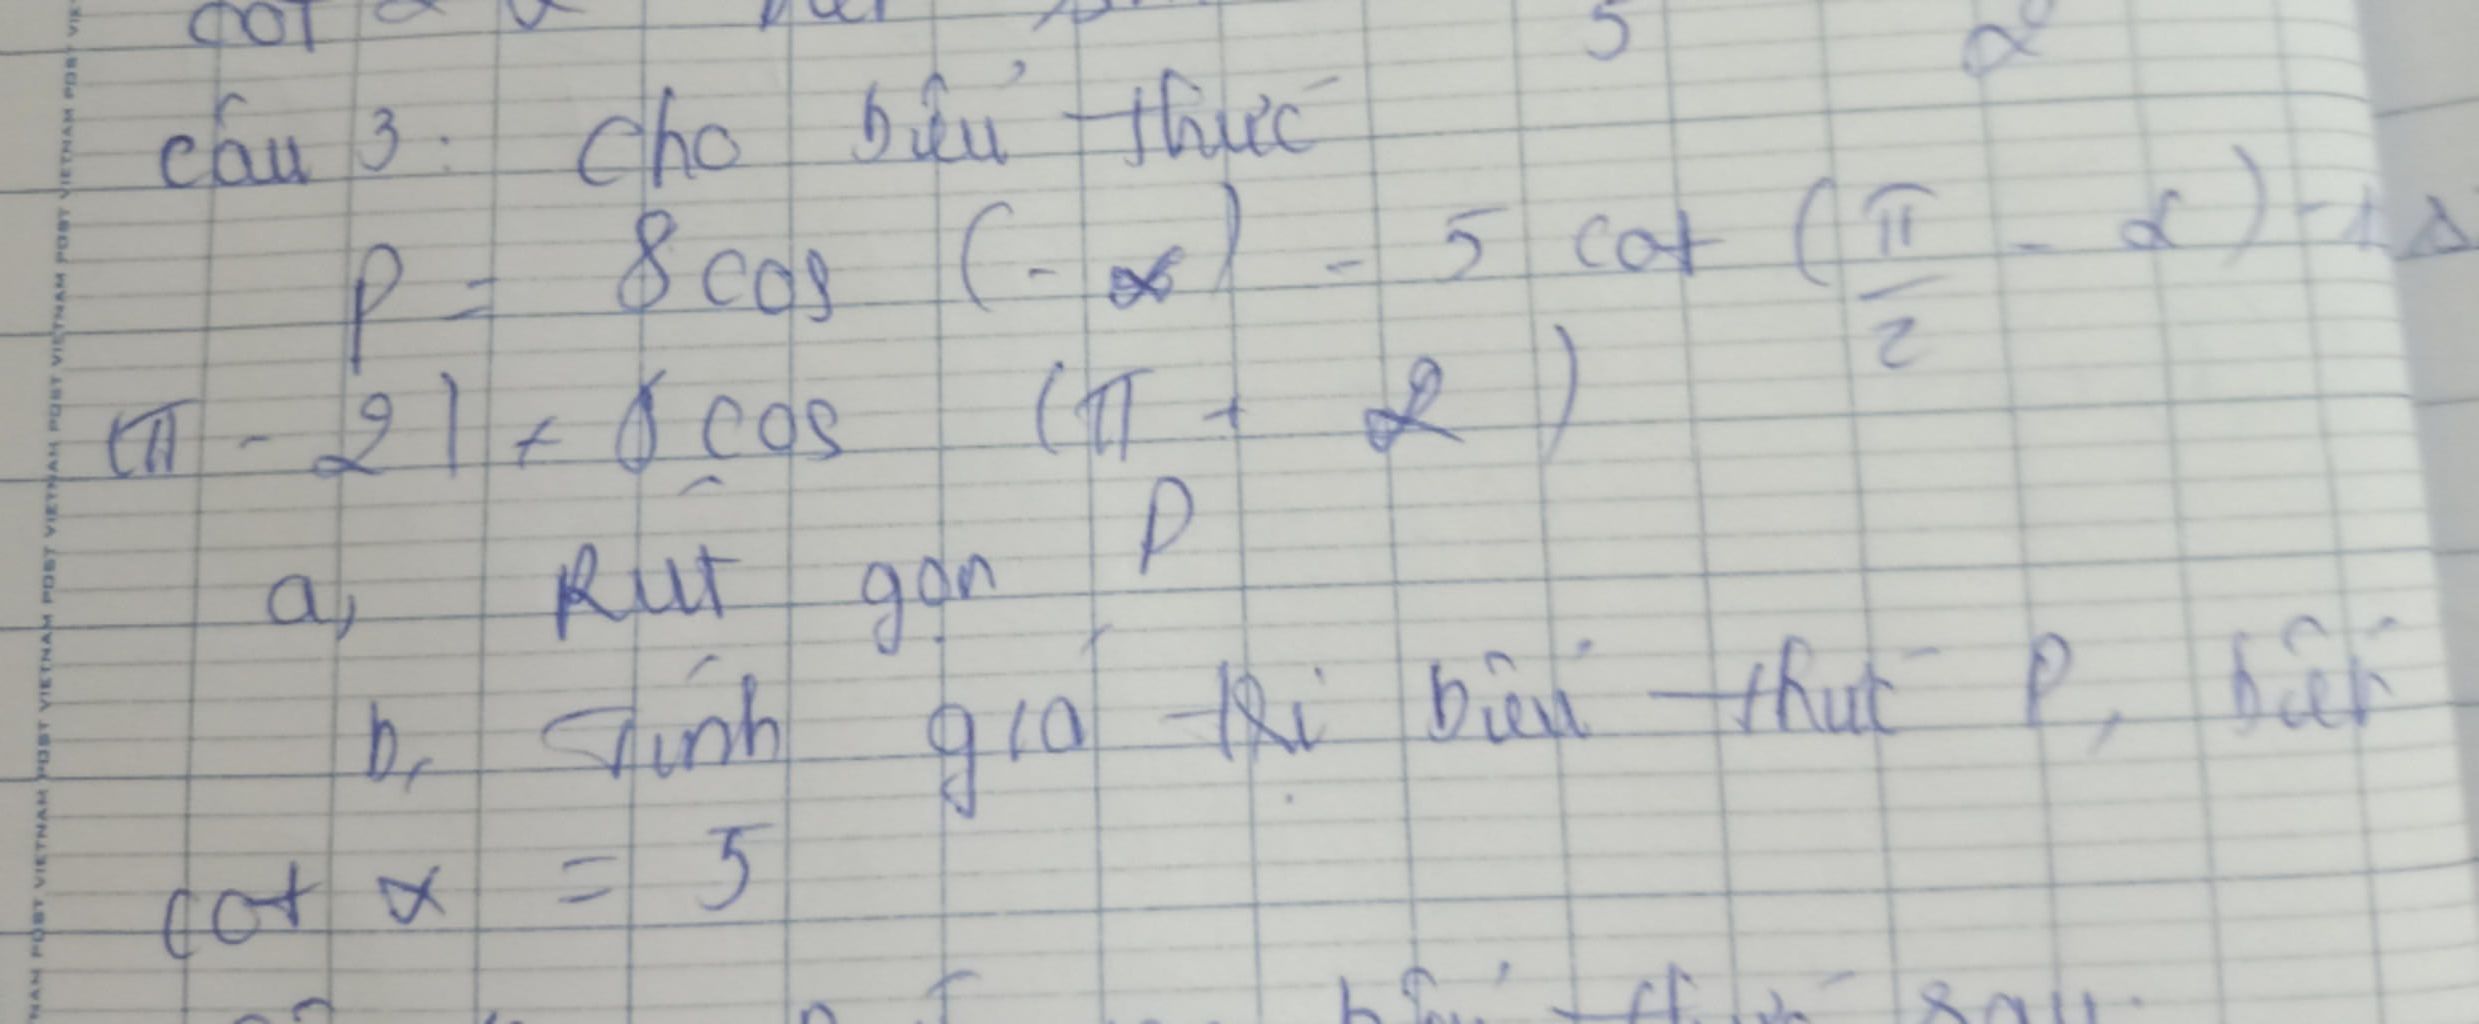 câu 3: Cho biểu thức
P = 8 cos (- α) - 5 cot (π/2 - α) -
(π - α) + 8 cos (π + α)
a, Rút gọn P
b, Tính giá trị biểu thức P, biết
cot α = 5